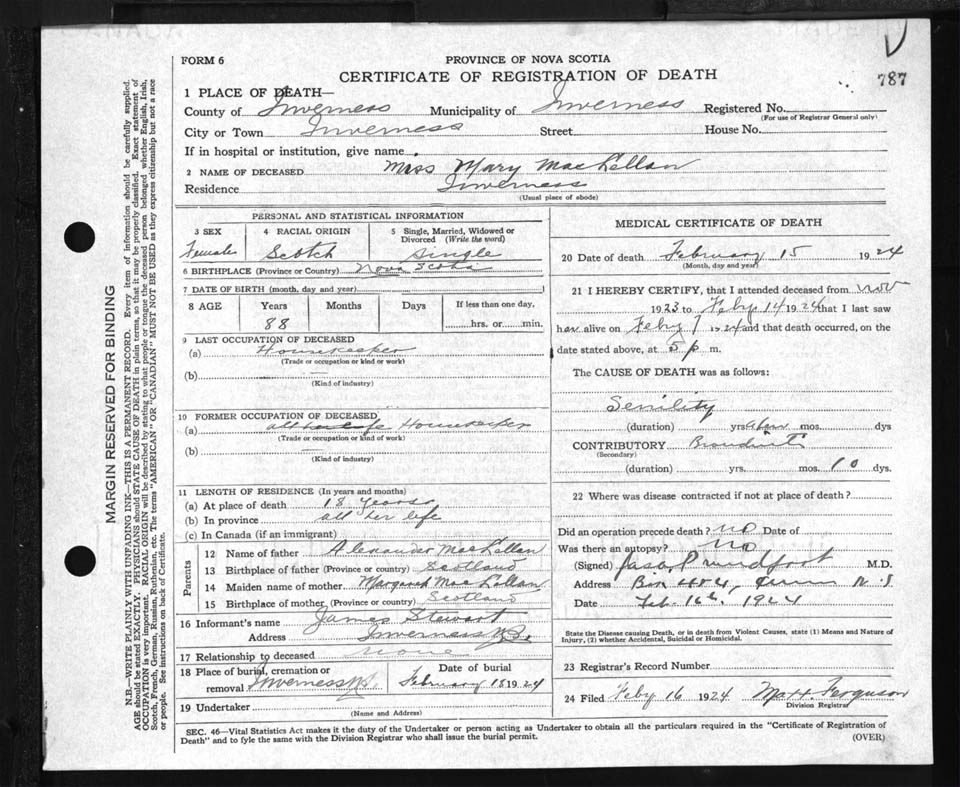 FORM 6
PROVINCE OF NOVA SCOTIA
CERTIFICATE OF REGISTRATION OF DEATH
787
1 PLACE OF DEATH—
County of Inverness Municipality of Inverness Registered No.
(For use of Registrar General only)
City or Town Inverness Street House No.
If in hospital or institution, give name
2 NAME OF DECEASED Miss Mary MacLellan
Residence Inverness
(Usual place of abode)
PERSONAL AND STATISTICAL INFORMATION
3 SEX 4 RACIAL ORIGIN 5 Single, Married, Widowed or Divorced (Write the word)
Female Scotch Single
6 BIRTHPLACE (Province or Country) Nova Scotia
7 DATE OF BIRTH (month, day and year)
8 AGE Years Months Days If less than one day,
88 hrs. or min.
9 LAST OCCUPATION OF DECEASED
(a) Housekeeper
(Trade or occupation or kind or work)
(b)
(Kind of industry)
10 FORMER OCCUPATION OF DECEASED
(a) all her life Housekeeper
(Trade or occupation or kind of work)
(b)
(Kind of industry)
11 LENGTH OF RESIDENCE (In years and months)
(a) At place of death 18 years
(b) In province all her life
(c) In Canada (if an immigrant)
Parents
12 Name of father Alexander MacLellan
13 Birthplace of father (Province or country) Scotland
14 Maiden name of mother Margaret MacLellan
15 Birthplace of mother (Province or country) Scotland
16 Informant's name James Stewart
Address Inverness N.S.
17 Relationship to deceased none
18 Place of burial, cremation or removal Inverness N.S. Date of burial February 18 1924
19 Undertaker
(Name and Address)
MEDICAL CERTIFICATE OF DEATH
20 Date of death February 15 1924
(Month, day and year)
21 I HEREBY CERTIFY, that I attended deceased from Nov
1923 to Feby 14 1924 that I last saw
her alive on Feby 7 1924 and that death occurred, on the
date stated above, at 5 p m.
The CAUSE OF DEATH was as follows:
Senility
(duration) yrs. mos. dys
CONTRIBUTORY Bronchitis
(Secondary)
(duration) yrs. mos. 10 dys.
22 Where was disease contracted if not at place of death?
Did an operation precede death? no Date of
Was there an autopsy? no
(Signed) M.D.
Address Box 484, N.S.
Date Feb. 16th, 1924
State the Disease causing Death, or in death from Violent Causes, state (1) Means and Nature of
Injury, (2) whether Accidental, Suicidal or Homicidal.
23 Registrar's Record Number
24 Filed Feby 16 1924 Ferguson
Division Registrar
SEC. 46—Vital Statistics Act makes it duty of the Undertaker or person acting as Undertaker to obtain all the particulars required in the "Certificate of Registration of
Death" and to fyle the same with the Division Registrar who shall issue the burial permit. (OVER)
MARGIN RESERVED FOR BINDING
N.B.—WRITE PLAINLY WITH UNFADING INK—THIS IS A PERMANENT RECORD. Every item of information should be carefully supplied.
AGE should be stated EXACTLY. PHYSICIANS should STATE CAUSE OF DEATH in plain terms, so that it may be properly classified. Exact statement of
OCCUPATION is very important. RACIAL ORIGIN will be described by stating to what people or tongue the deceased person belonged whether English, Irish,
Scotch, French, German, Russian, Ruthenian, etc. The terms "AMERICAN" OR "CANADIAN" MUST NOT BE USED as they express citizenship but not a race
or people. See instructions on back of Certificate.